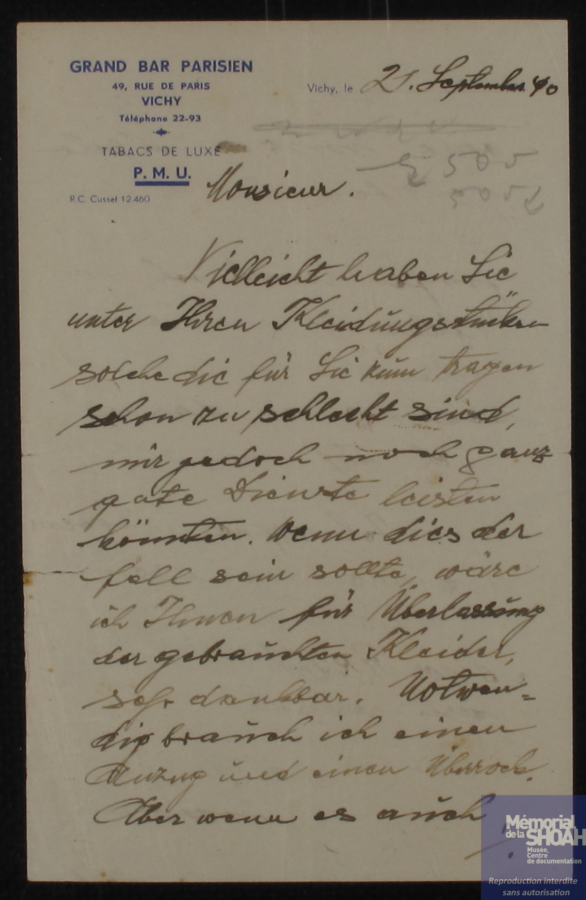 GRAND BAR PARISIEN
49, RUE DE PARIS
VICHY
Téléphone 22-93
TABACS DE LUXE
P. M. U.
R.C. Cusset 12.460
Vichy, le 21. September 40
500
5002
Monsieur.
Vielleicht haben Sie
unter Ihren Kleidungstücken
solche die für Sie zum tragen
schon zu schlecht sind,
mir jedoch noch ganz
gute Dienste leisten
könnten. Wenn dies der
fall sein sollte, wäre
ich Ihnen für Überlassung
der gebrauchten Kleider,
sehr dankbar. Notwen=
dig brauch ich einen
Anzug und einen Überrock.
Aber wenn es auch
Mémorial
de la SHOAH
Musée,
Centre
de documentation
Reproduction interdite
sans autorisation